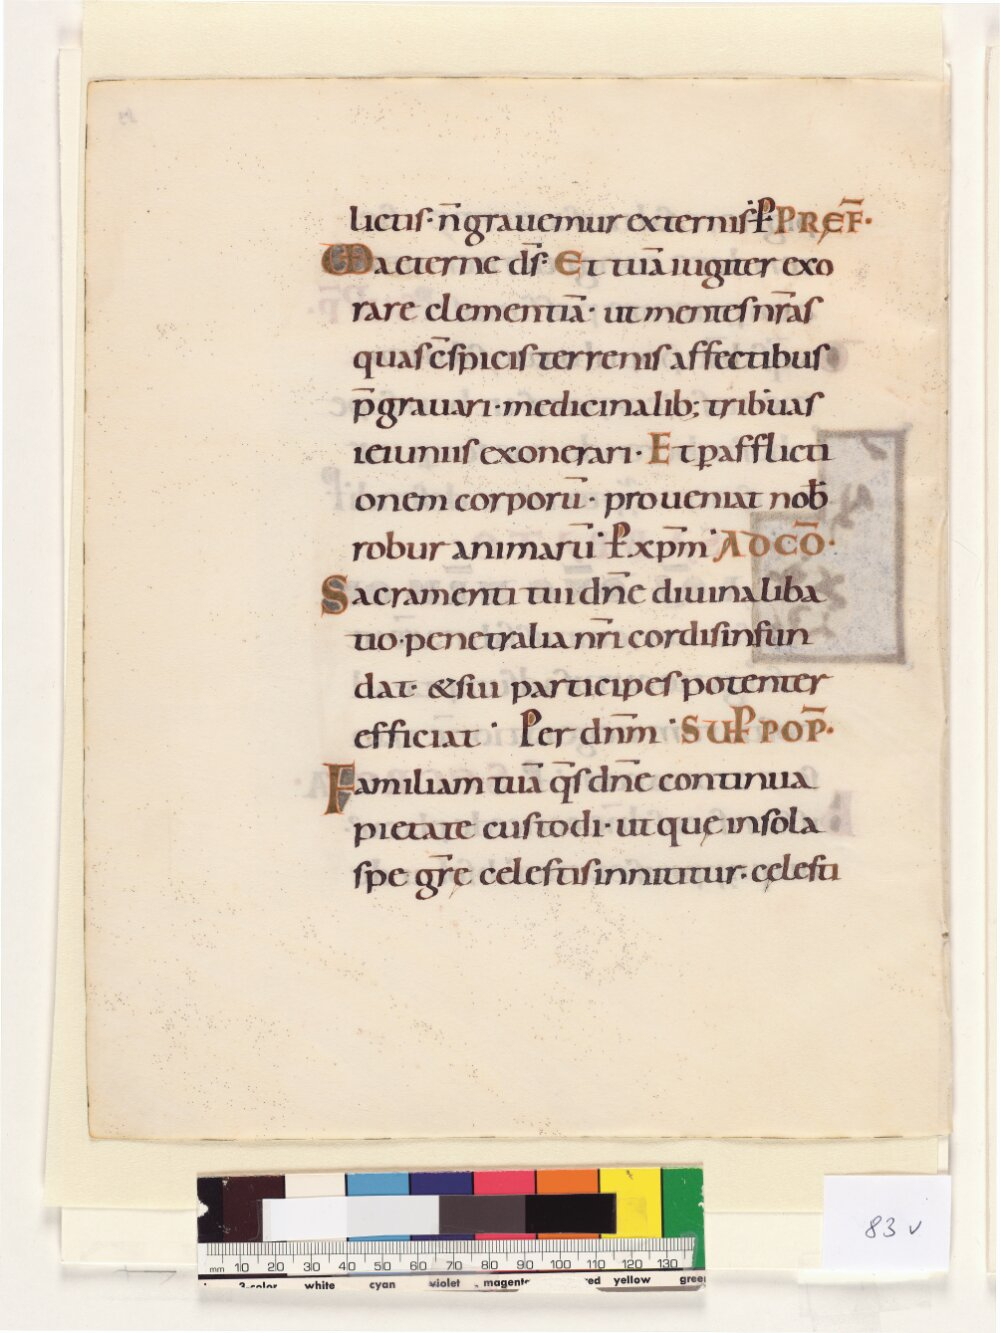 lictis· n̄ grauemur externis· P̲ PREF̄·
VD aeterne ds̄· Et tuā iugiter exo
rare clementiā· ut mentes nr̄as
quas c̄spicis terrenis affectibus
p̄grauari· medicinalib; tribuas
ieiuniis exonerari· Et ꝑ afflicti
onem corporū· proueniat nob̄
robur animarū· P̲ xp̄m· AD CŌ·
Sacramenti tui dn̄e diuina liba
tio· penetralia nr̄i cordis infun
dat· & sui participes potenter
efficiat· Per dn̄m· SUP̲ POP̄·
Familiam tuā q̄s dn̄e continua
pietate custodi· ut que in sola
spe gr̄e celestis innititur· cęlesti
83 v
mm 10 20 30 40 50 60 70 80 90 100 110 120 130
3-color white cyan violet magenta red yellow green